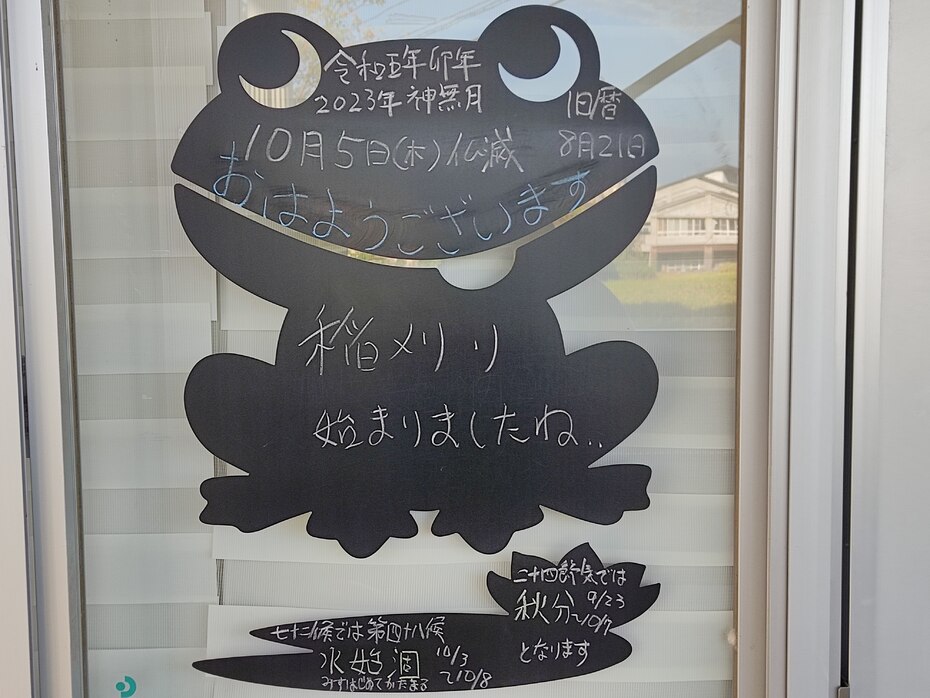 令和五年卯年
2023年神無月
旧暦
8月21日
10月5日(木)仏滅
おはようございます
稲メリリ
始まりましたね..
二十四節気では
秋分 9/23
～10/7
となります
七十二候では第四十八候
水始涸 10/3
～10/8
みずはじめてかたまる